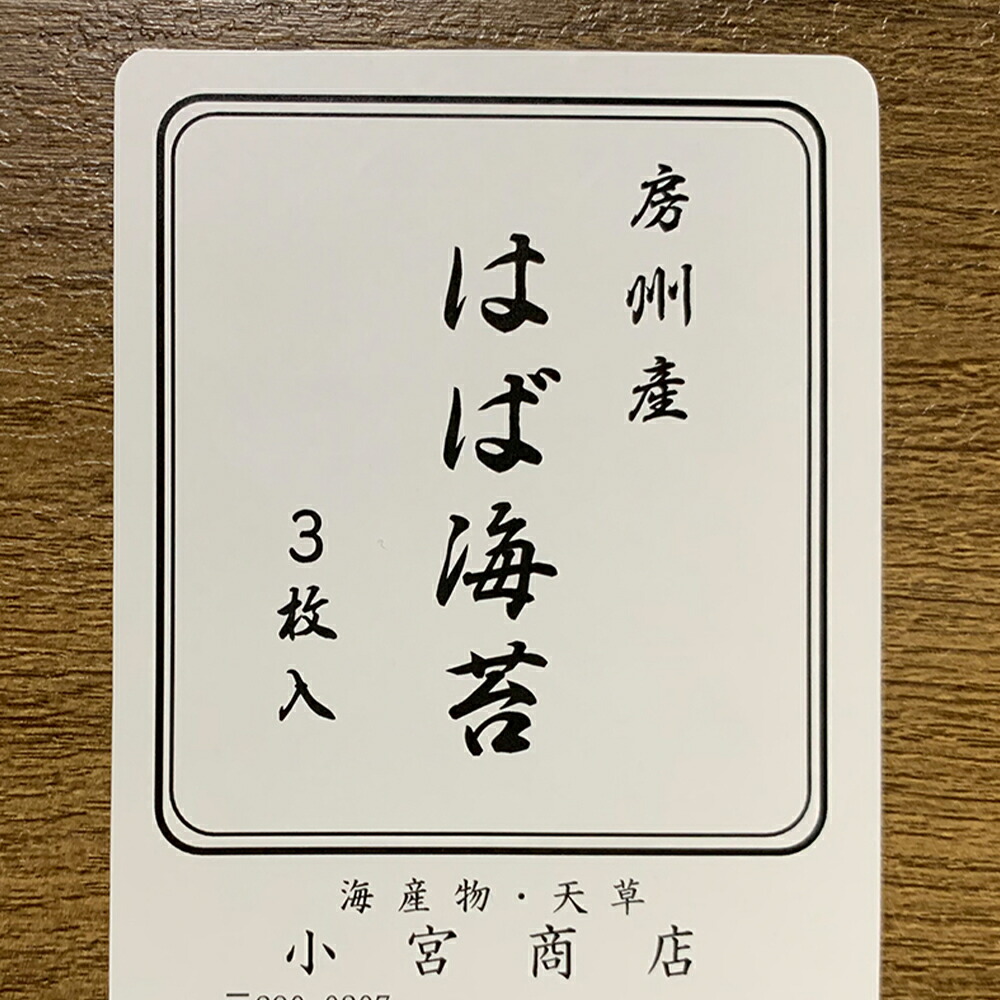 房州産
はば海苔
3枚入
海産物・天草
小宮商店